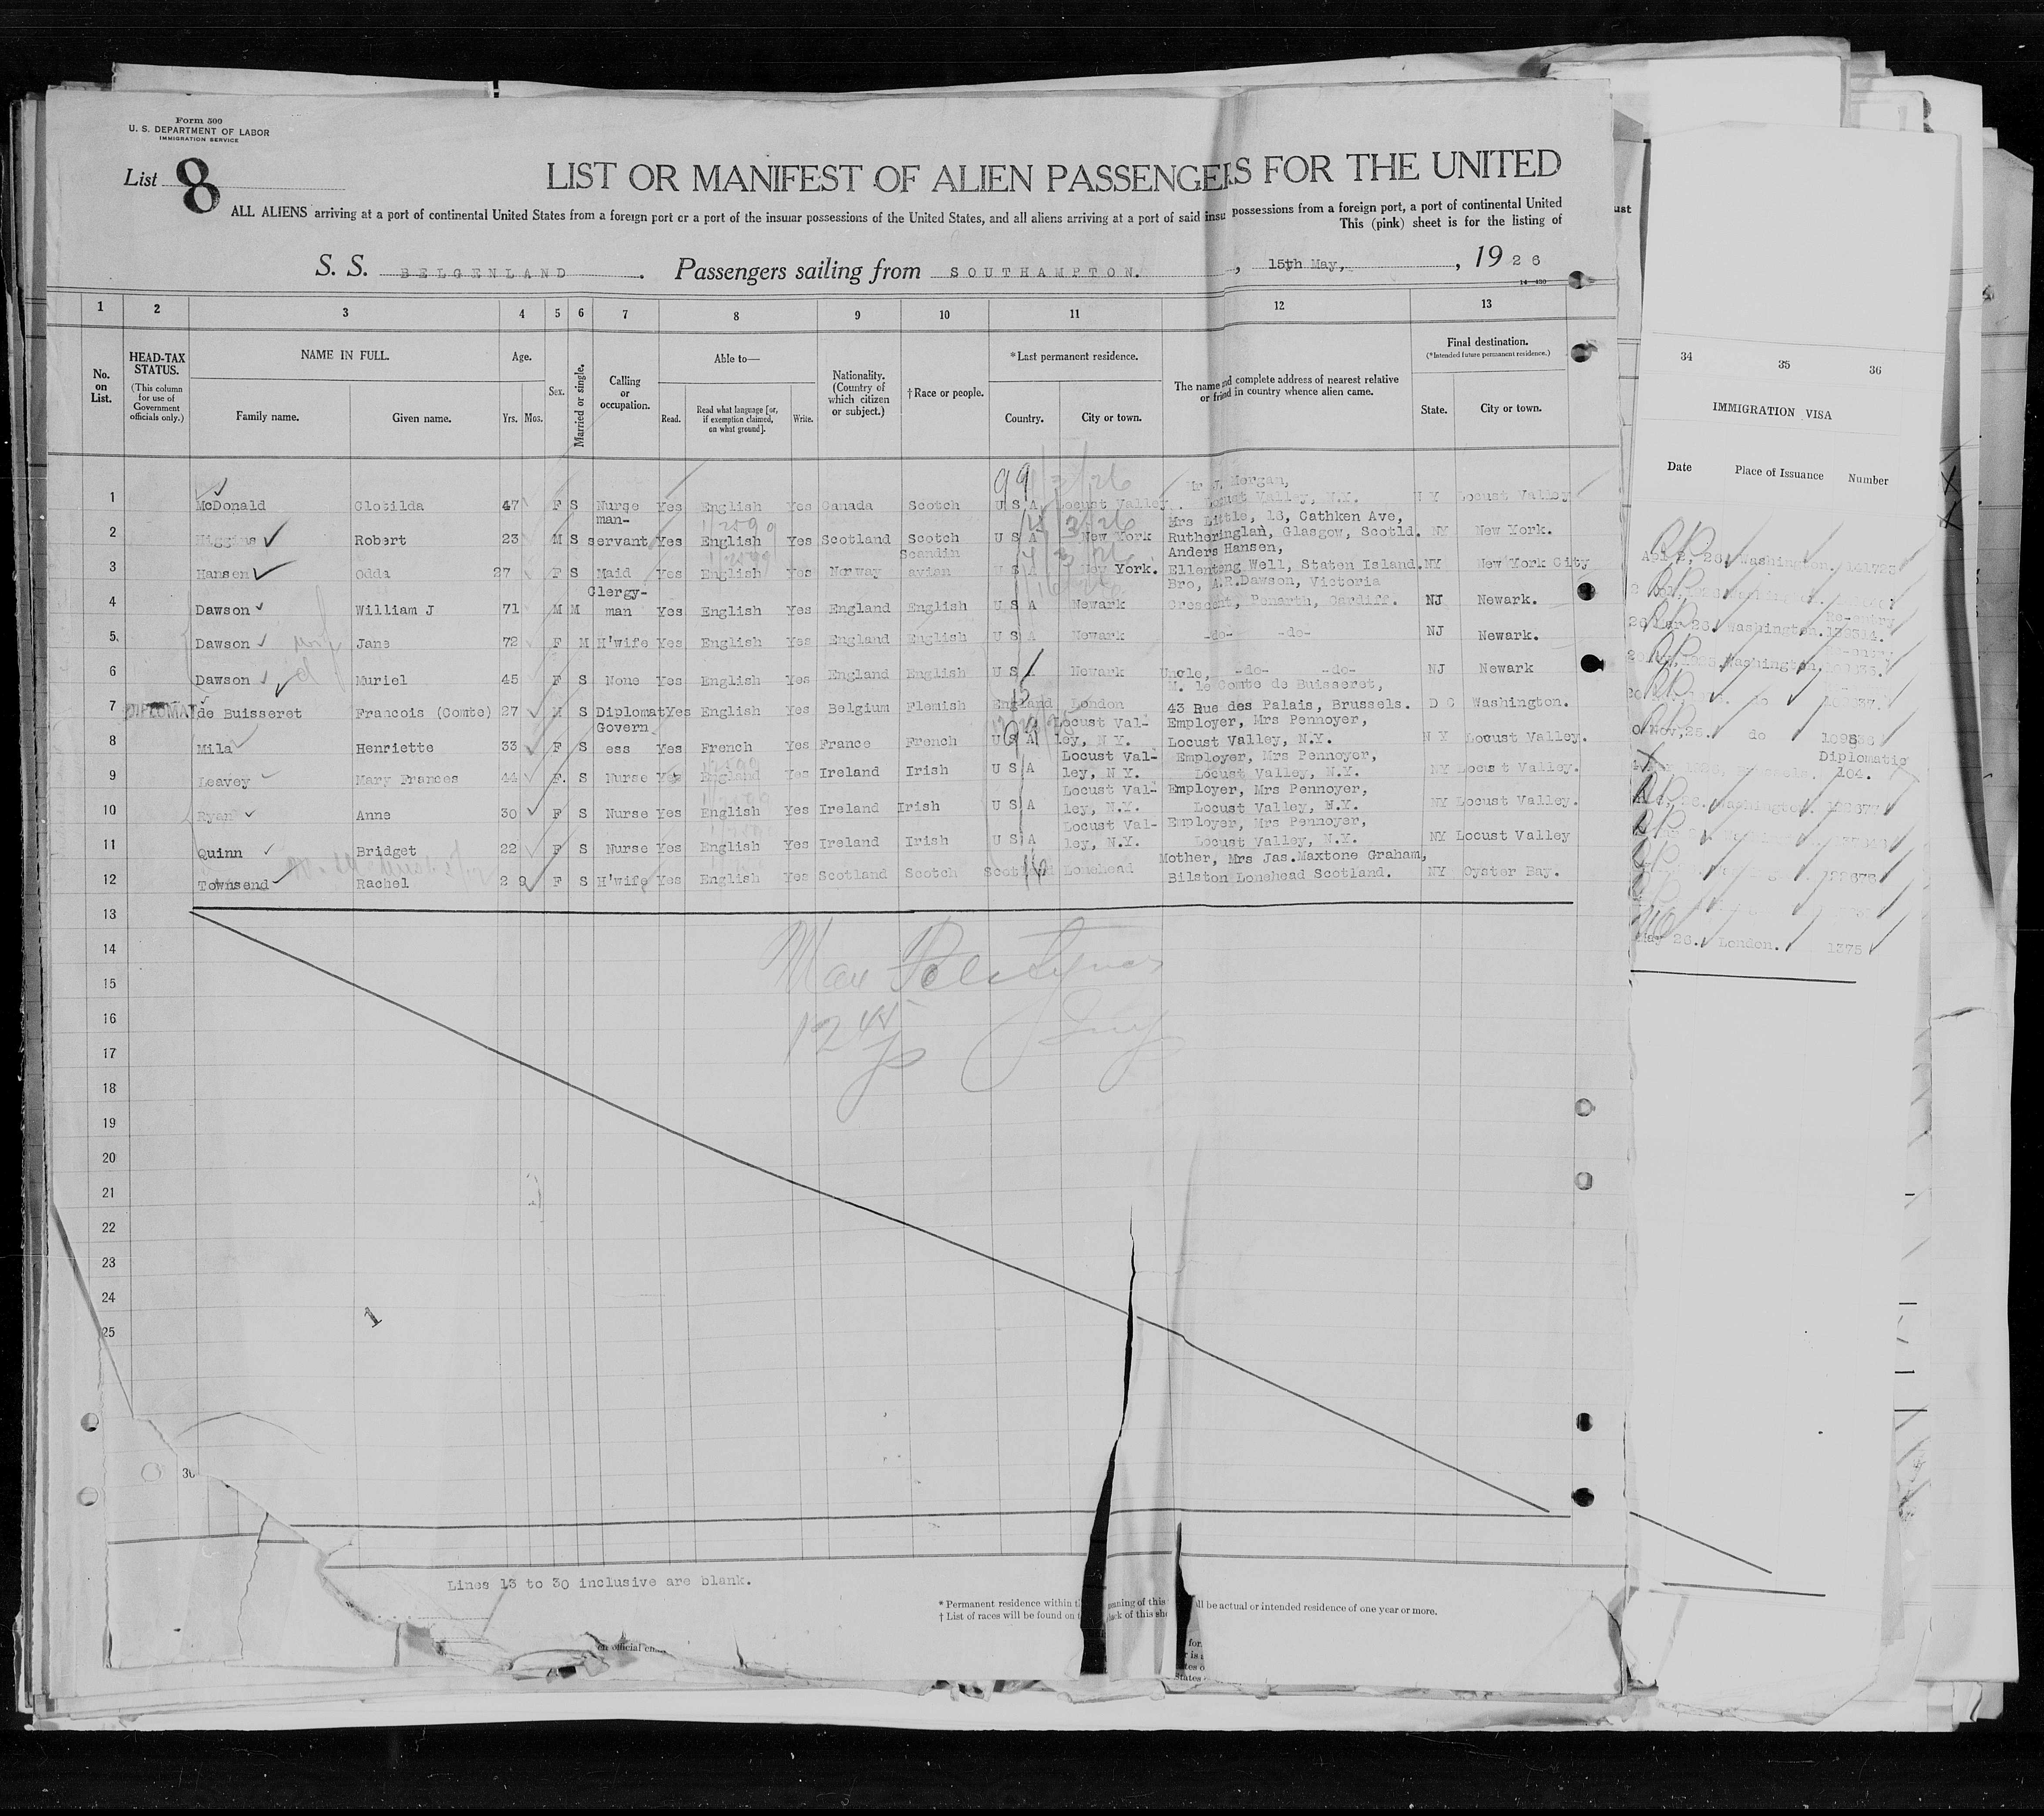 Form 500
U. S. DEPARTMENT OF LABOR
IMMIGRATION SERVICE
List 8
LIST OR MANIFEST OF ALIEN PASSENGERS FOR THE UNITED
ALL ALIENS arriving at a port of continental United States from a foreign port or a port of the insular possessions of the United States, and all aliens arriving at a port of said insu possessions from a foreign port, a port of continental United
This (pink) sheet is for the listing of
S. S. BELGENLAND. Passengers sailing from SOUTHAMPTON., 15th May,, 1926
1 2 3 4 5 6 7 8 9 10 11 12 13
No. on List.
HEAD-TAX STATUS.
(This column for use of Government officials only.)
NAME IN FULL.
Family name. Given name.
Age.
Yrs. Mos.
Sex.
Married or single.
Calling or occupation.
Able to—
Read. Read what language [or, if exemption claimed, on what ground]. Write.
Nationality. (Country of which citizen or subject.)
†Race or people.
*Last permanent residence.
Country. City or town.
The name and complete address of nearest relative or friend in country whence alien came.
Final destination.
(*Intended future permanent residence.)
State. City or town.
34 35 36
IMMIGRATION VISA
Date Place of Issuance Number
1 McDonald Clotilda 47 F S Nurse Yes English Yes Canada Scotch U S A Locust Valley. Mr J. Morgan, Locust Valley, N.Y. N Y Locust Valley
2 Higgins Robert 23 M S man-servant Yes English Yes Scotland Scotch U S A New York Mrs Little, 18, Cathken Ave, Rutheringlan, Glasgow, Scotld. NY New York.
3 Hansen Odda 27 F S Maid Yes English Yes Norway Scandinavian U S A New York. Anders Hansen, Ellenteng Well, Staten Island. NY New York City
4 Dawson William J 71 M M Clergy-man Yes English Yes England English U S A Newark Bro, A.R.Dawson, Victoria Crescent, Penarth, Cardiff. NJ Newark.
5. Dawson Jane 72 F M H'wife Yes English Yes England English U S A Newark -do- -do- NJ Newark.
6 Dawson Muriel 45 F S None Yes English Yes England English U S A Newark Uncle, -do- -do- NJ Newark
7 DIPLOMAT de Buisseret Francois (Comte) 27 M S Diplomat Yes English Yes Belgium Flemish England London M. le Comte de Buisseret, 43 Rue des Palais, Brussels. D C Washington.
8 Mila Henriette 33 F S Governess Yes French Yes France French U S A Locust Val-ley, N Y. Employer, Mrs Pennoyer, Locust Valley, N.Y. N Y Locust Valley.
9 Leavey Mary Frances 44 F. S Nurse Yes England Yes Ireland Irish U S A Locust Val-ley, N Y. Employer, Mrs Pennoyer, Locust Valley, N.Y. NY Locust Valley.
10 Ryan Anne 30 F S Nurse Yes English Yes Ireland Irish U S A Locust Val-ley, N.Y. Employer, Mrs Pennoyer, Locust Valley, N.Y. NY Locust Valley.
11 Quinn Bridget 22 F S Nurse Yes English Yes Ireland Irish U S A Locust Val-ley, N.Y. Employer, Mrs Pennoyer, Locust Valley, N.Y. NY Locust Valley
12 Townsend Rachel 29 F S H'wife Yes English Yes Scotland Scotch Scotland Lonehead Mother, Mrs Jas.Maxtone Graham, Bilston Lonehead Scotland. NY Oyster Bay.
Washington.
Re-entry
26 Mar 26. Washington.
Nov, 25. do
Diplomatic
104.
May 26. London. 1375
13
14
15
16
17
18
19
20
21
22
23
24
25
30
Lines 13 to 30 inclusive are blank.
* Permanent residence within meaning of this be actual or intended residence of one year or more.
† List of races will be found on back of this